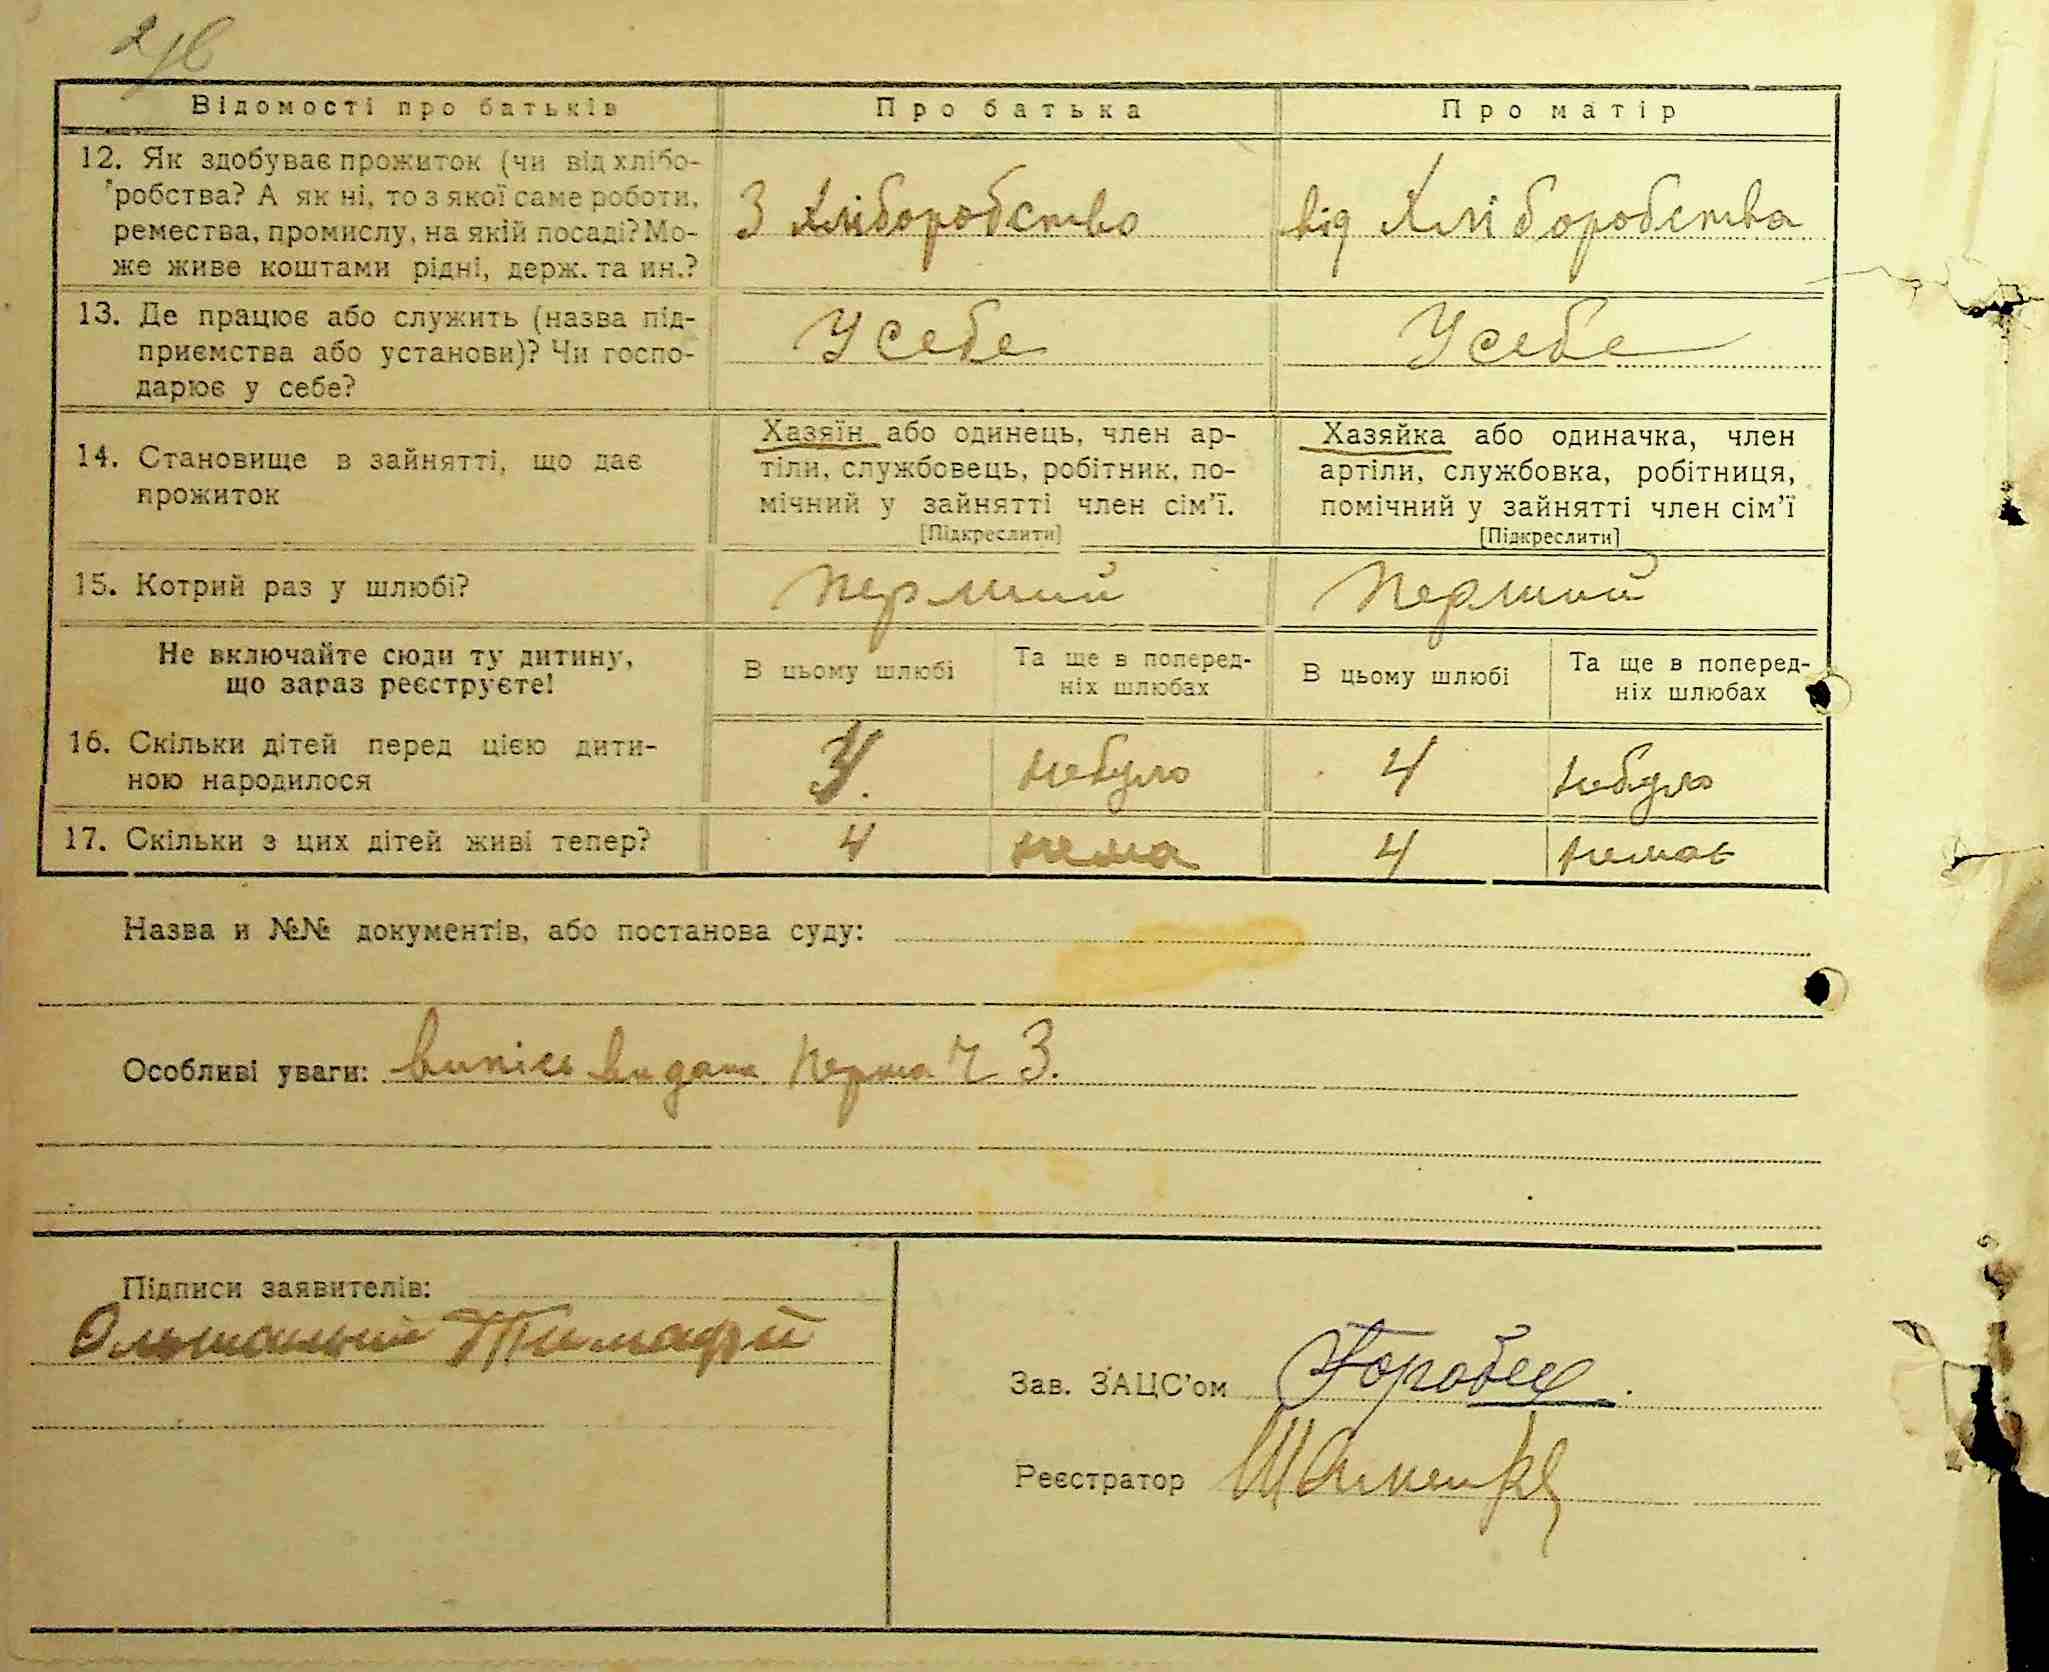 Відомості про батьків Про батька Про матір
12. Як здобуває прожиток (чи від хлібо-
робства? А як ні, то з якої саме роботи,
ремества, промислу, на якій посаді? Мо-
же живе коштами рідні, держ. та ин.?
З Хліборобство
від Хліборобства
13. Де працює або служить (назва під-
приємства або установи)? Чи госпо-
дарює у себе?
У себе
У себе
14. Становище в зайнятті, що дає
прожиток
Хазяїн або одинець, член ар-
тіли, службовець, робітник, по-
мічний у зайнятті член сім'ї.
[Підкреслити]
Хазяйка або одиначка, член
артіли, службовка, робітниця,
помічний у зайнятті член сім'ї
[Підкреслити]
15. Котрий раз у шлюбі?
Перший
Перший
Не включайте сюди ту дитину,
що зараз реєструєте!
В цьому шлюбі
Та ще в поперед-
ніх шлюбах
В цьому шлюбі
Та ще в поперед-
ніх шлюбах
16. Скільки дітей перед цією дити-
ною народилося
4 небуло 4 небуло
17. Скільки з цих дітей живі тепер?
4 нема 4 немає
Назва и №№ документів, або постанова суду:
Особливі уваги: випісь видана перша Ч 3.
Підписи заявителів:
Ольшанький Тимафій
Зав. ЗАЦС'ом
Реєстратор